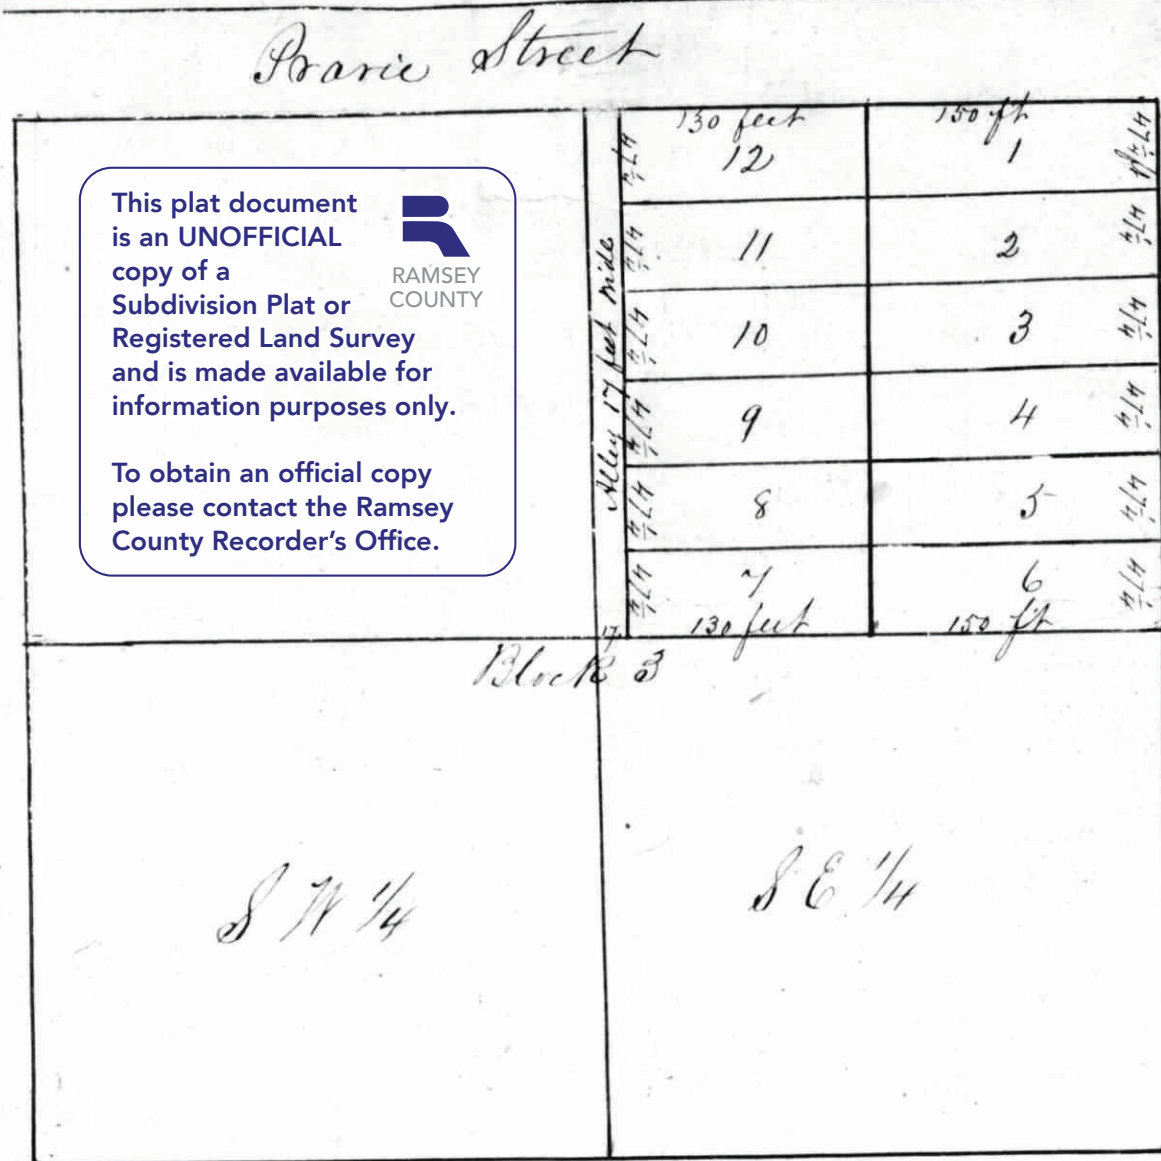 Pravie Street
This plat document
is an UNOFFICIAL
copy of a
Subdivision Plat or
Registered Land Survey
and is made available for
information purposes only.
To obtain an official copy
please contact the Ramsey
County Recorder's Office.
RAMSEY
COUNTY
Alley 17 feet wide
130 feet
150 ft
12
1
11
2
10
3
9
4
8
5
7
6
130 feet
150 ft
17
Block 3
S W 1/4
S E 1/4